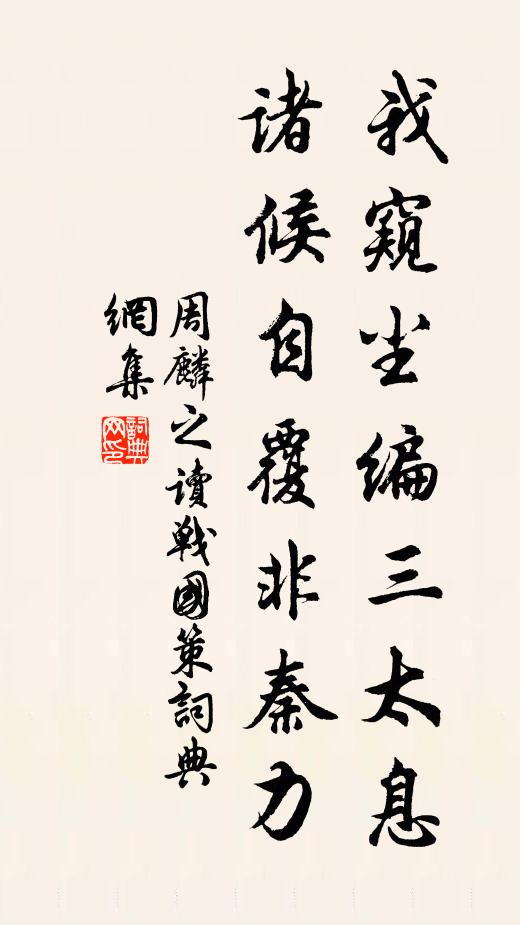 我窥尘编三太息
诸候自覆非秦力
周麟之读戦國策詞典
網集
詞典网印